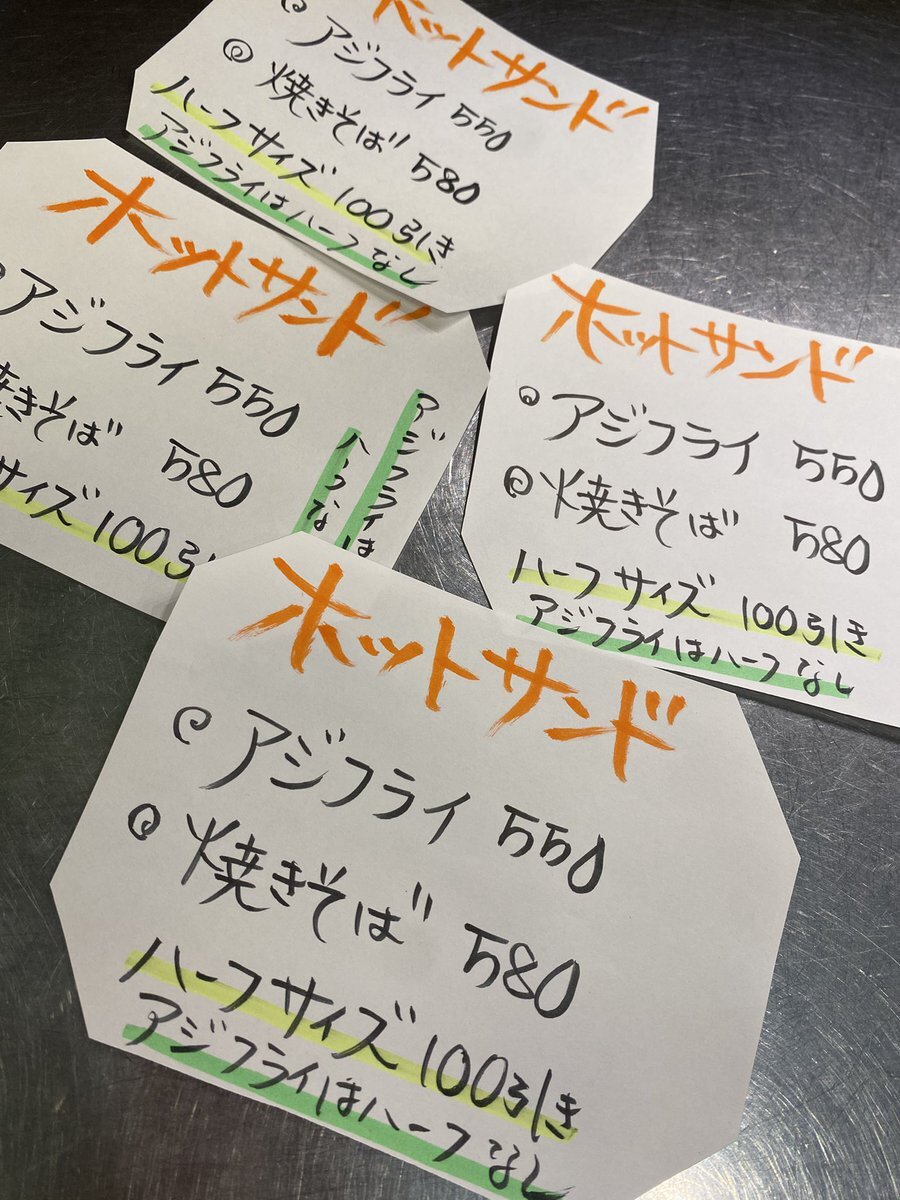 ホットサンド
アジフライ 550
焼きそば 580
ハーフサイズ 100引き
アジフライはハーフなし
ホットサンド
アジフライ 550
焼きそば 580
サイズ 100引
アジフライは
ハーフな
ホットサンド
アジフライ 550
焼きそば 580
ハーフサイズ 100引き
アジフライはハーフなし
ホットサンド
アジフライ 550
焼きそば 580
ハーフサイズ 100引き
アジフライはハーフなし